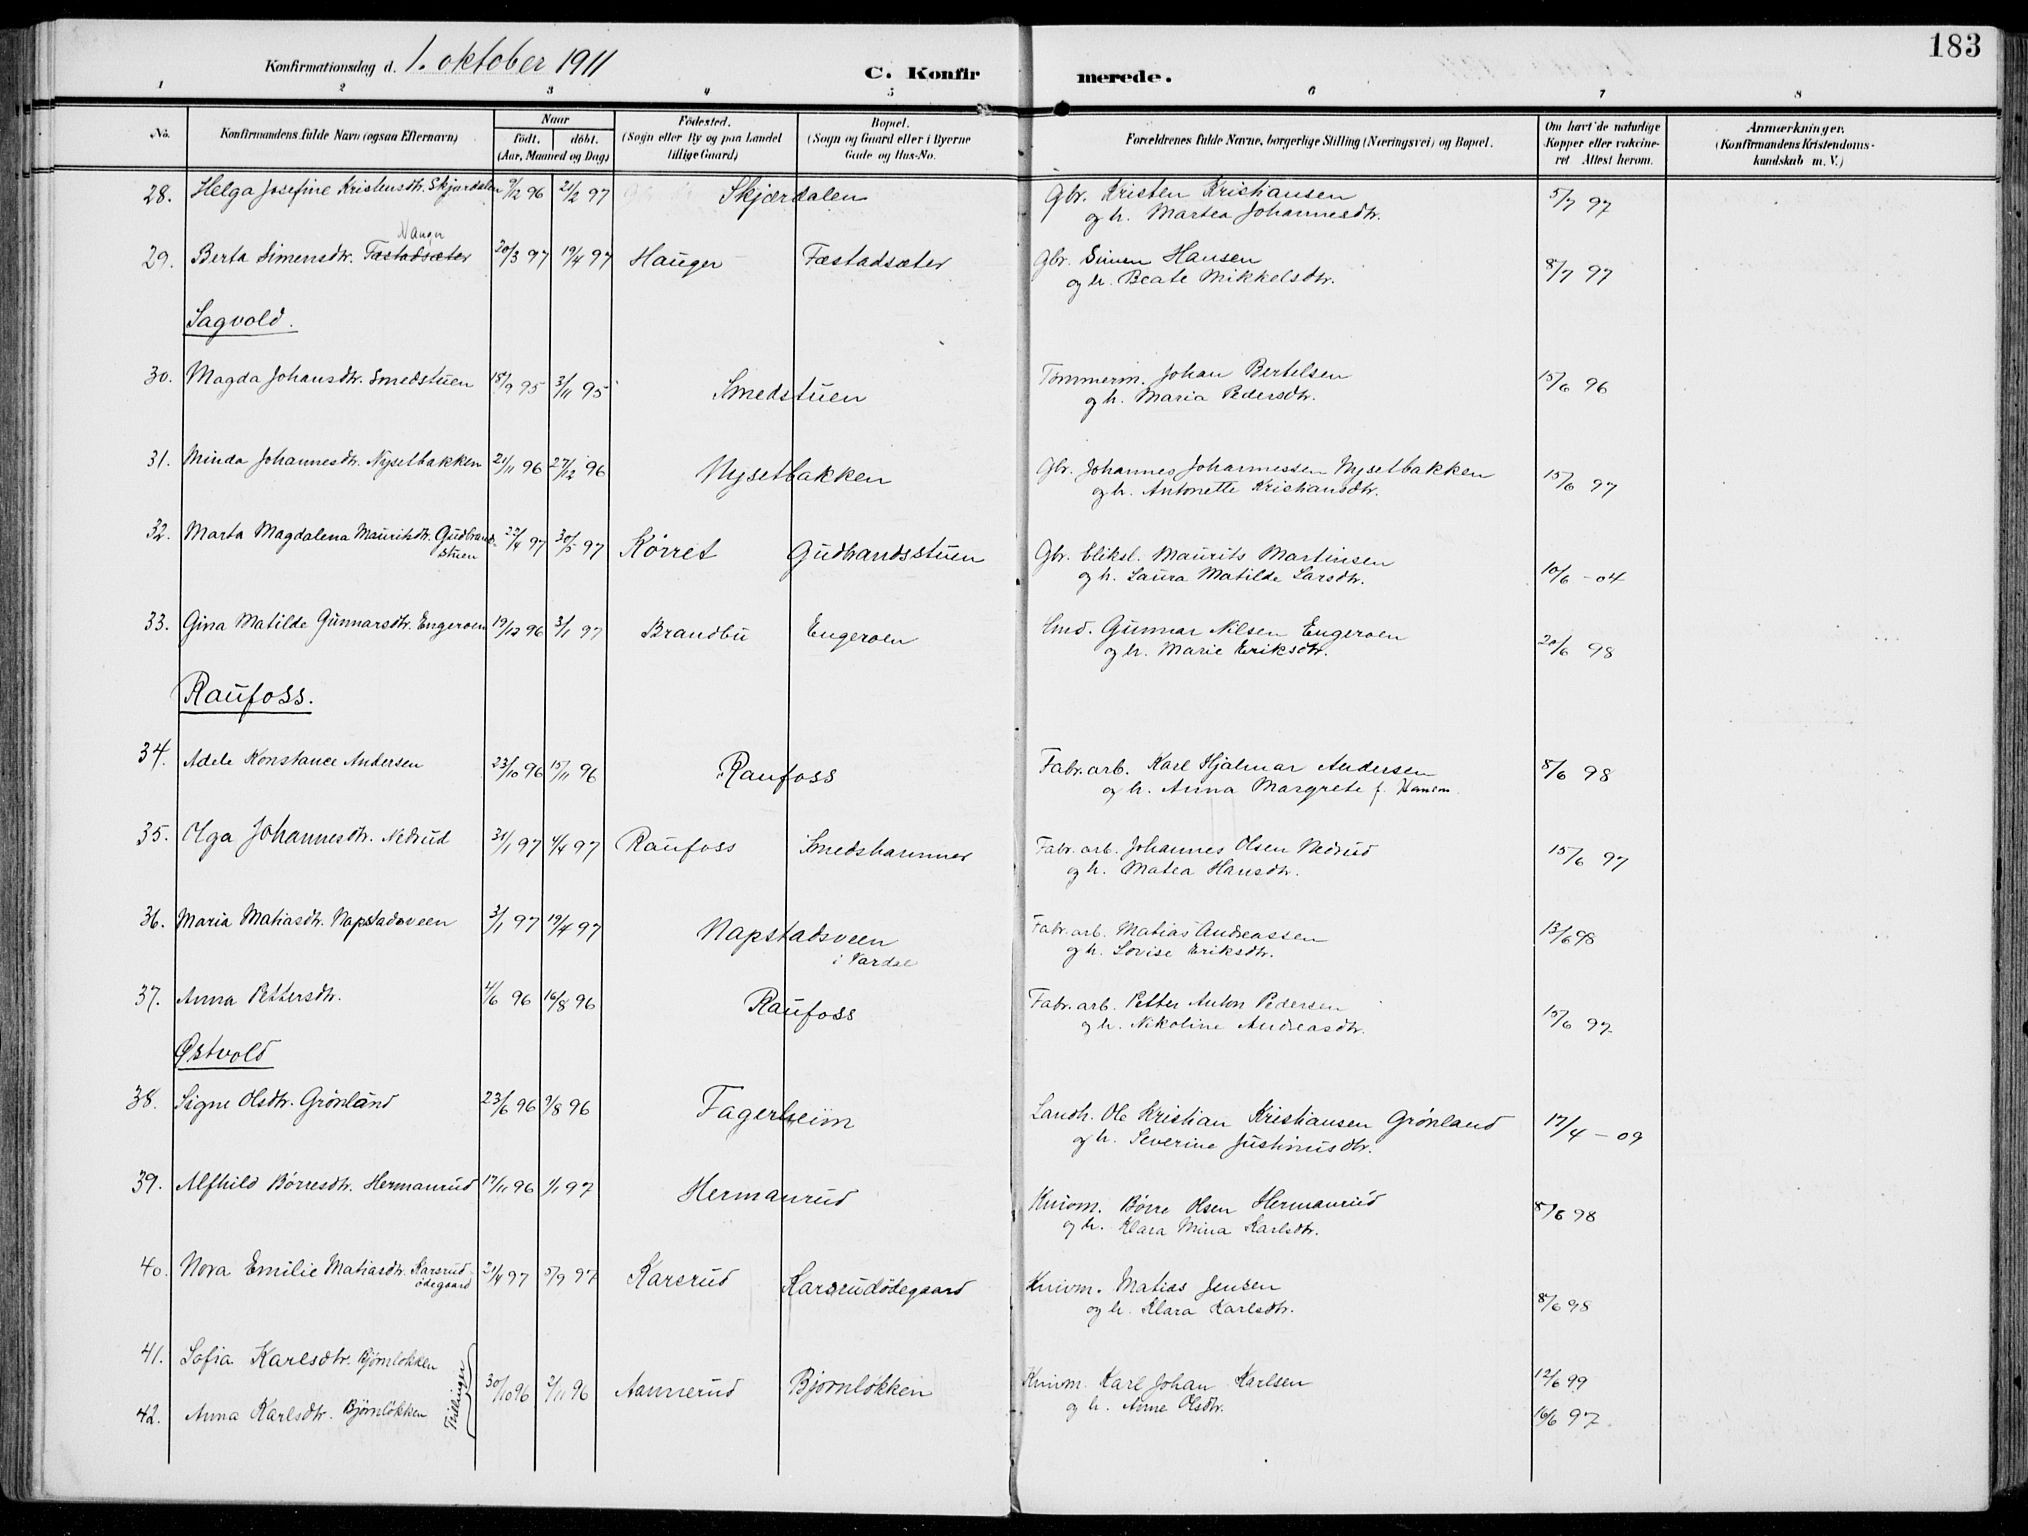 183
Konfirmationsdag d. 1. oktober 1911
C. Konfirmerede.
1 2 3 4 5 6 7 8
No. Konfirmandens fulde Navn (ogsaa Efternavn) Naar født. døbt. (Aar, Maaned og Dag) Fødested. (Sogn eller By og paa Landet tillige Gaard) Bopæl. (Sogn og Gaard eller i Byerne Gade og Hus-No. Forældrenes fulde Navne, borgerlige Stilling (Næringsvei) og Bopæl. Om havt de naturlige Kopper eller vakcineret Attest herom. Anmærkninger. (Konfirmandens Kristendomskundskab m. V.)
28. Helga Josefine Kristensdtr. Skjærdalen 9/12 96 21/2 97 Skjærdalen Gbr. Kristen Kristiansen 5/7 97
og h. Martea Johannesdtr.
Hauger
29. Berta Simensdtr. Fæstadsæter 30/3 97 19/4 97 Hauger Fæstadsæter Gbr. Simen Hansen 8/7 97
og h. Beate Mikkelsdtr.
Sagvold.
30. Magda Johansdtr. Smedstuen 18/9 95 3/11 95 Smedstuen Tømmerm. Johan Bertelsen 15/6 96
og h. Maria Pedersdtr.
31. Minda Johannesdtr. Nysetbakken 21/11 96 27/12 96 Nysetbakken Gbr. Johannes Johannessen Nysetbakken 15/6 97
og h. Antonette Kristiansdtr.
32. Marta Magdalena Mauritsdtr. Gudbrands-stuen 27/4 97 30/5 97 Kørret Gudbandsstuen Gbr. bliksl. Maurits Martinsen 10/6 - 04
og h. Laura Matilde Larsdtr.
33. Gina Matilde Gunnarsdtr. Engeroen 19/12 96 3/1 97 Brandbu Engeroen Smd. Gunnar Nilsen Engeroen 20/6 98
og h. Marie Eriksdtr.
Raufoss.
34. Adele Konstance Andersen 23/10 96 15/11 96 Raufoss Fabr. arb. Karl Hjalmar Andersen 8/6 98
og h. Anna Margrete f. Hansen
35. Olga Johannesdtr. Nedrud 31/1 97 4/4 97 Raufoss Smedshammer Fabr. arb. Johannes Olsen Nedrud 15/6 97
og h. Matea Hansdtr.
36. Maria Matiasdtr. Napstadsveen 3/1 97 19/4 97 Napstadsveen Fabr. arb. Matias Andreassen 13/6 98
i Vardal og h. Lovise Eriksdtr.
37. Anna Pettersdtr. 4/6 96 16/8 96 Raufoss Fabr. arb. Petter Anton Pedersen 15/6 97
og h. Nikoline Andreasdtr.
Østvold
38. Signe Olsdtr. Grønland 23/6 96 9/8 96 Fagerheim Landh. Ole Kristian Kristiansen Grønland 17/4 - 09
og h. Severine Justinusdtr.
39. Alfhild Børresdtr. Hermanrud 17/11 96 1/1 97 Hermanrud Knivm. Børre Olsen Hermanrud 8/6 98
og h. Klara Mina Karlsdtr.
40. Nora Emilie Matiasdtr. Karsrud-ødegaard 21/4 97 5/9 97 Karsrud Karsrudødegaard Knivm. Matias Jensen 8/6 98
og h. Klara Karlsdtr.
41. Sofia Karlsdtr. Bjørnløkken 30/10 96 2/11 96 Aannerud Bjørnløkken Knivm. Karl Johan Karlsen 12/6 99
Tvillinger
42. Anna Karlsdtr. Bjørnløkken og h. Anne Olsdtr. 16/6 97